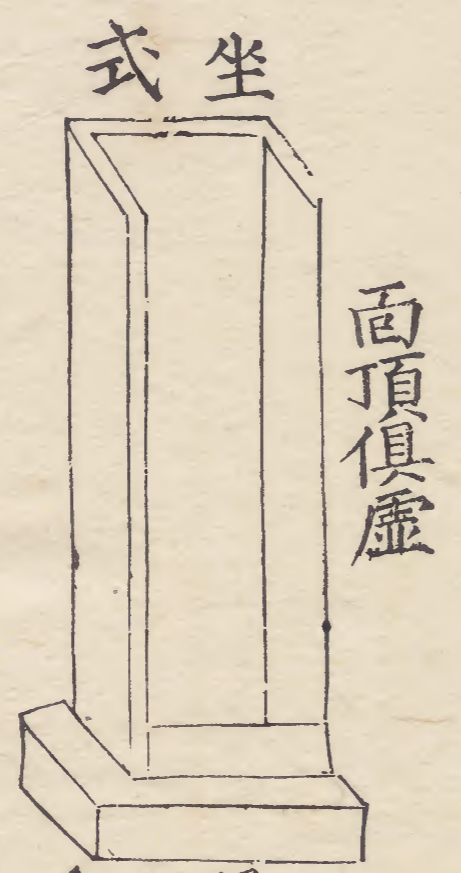 坐式
靣頂俱虛